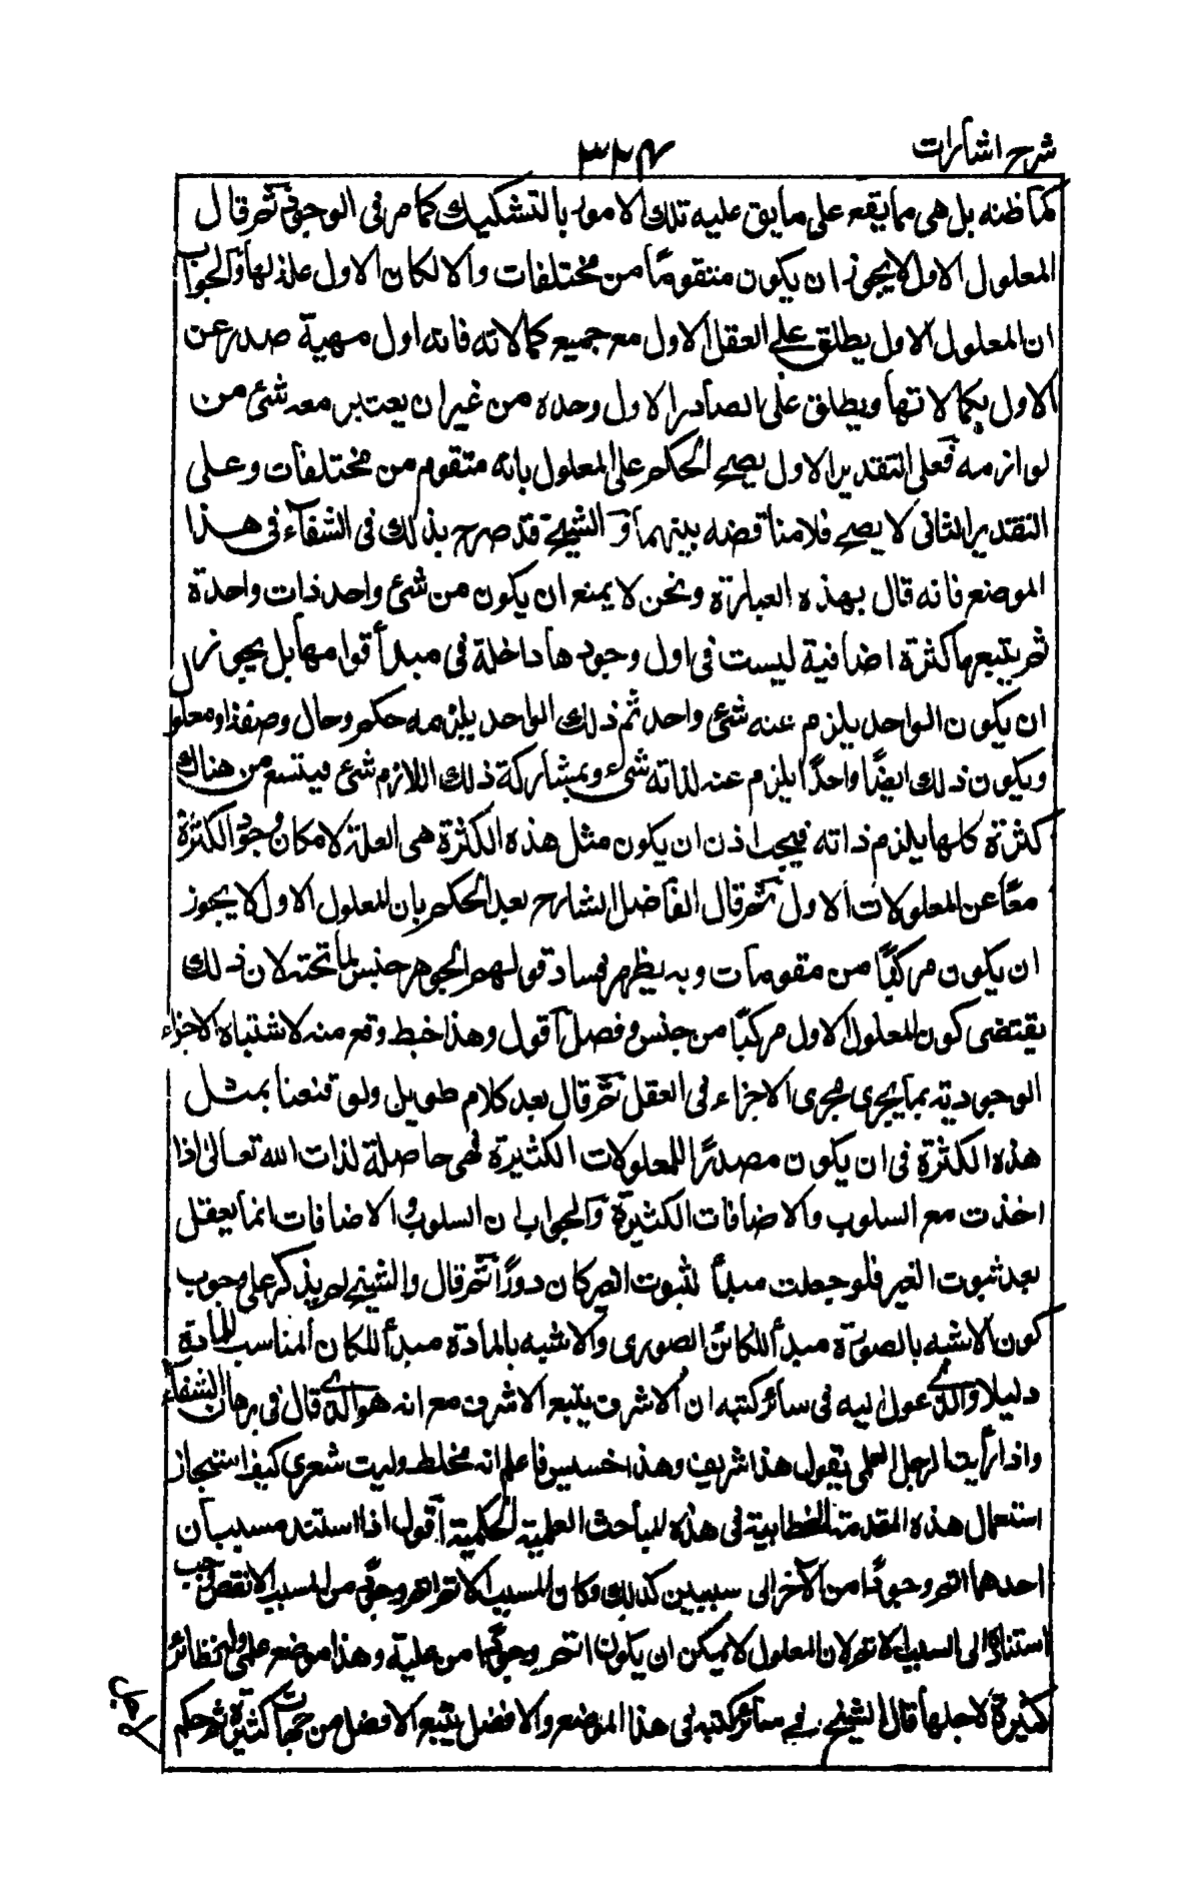 شرح اشارات
۳۲۴
كما ظنه بل هى مما يقع على ما يق عليه تلك الامور بالتشكيك كما مر فى الوجود ثم قال
المعلول الاول لا يجوز ان يكون متقومًا من مختلفات والا لكان الاول علة لها والجواب
ان المعلول الاول يطلق على العقل الاول مع جميع كمالاته فانه اول مهية صدر عن
الاول بكمالاتها ويطلق على الصادر الاول وحده من غير ان يعتبر معه شئ من
لوازمه فعلى التقدير الاول يصح الحكم على المعلول بانه متقوم من مختلفات وعلى
التقدير الثانى لا يصح فلا مناقضه بينهما و الشيخ قد صرح بذلك فى الشفاء فى هذا
الموضع فانه قال بهذه العبارة ونحن لا يمنع ان يكون من شئ واحد ذات واحدة
ثم يتبعها كثرة اضافية ليست فى اول وجودها داخلة فى مبدأ قوامها بل يجوز
ان يكون الواحد يلزم عنه شئ واحد ثم ذلك الواحد يلزمه حكم وحال وصفة او معلول
ويكون ذلك ايضًا واحدًا يلزم عنه لذاته شئ وبمشاركة ذلك اللازم شئ فيتسع من هناك
كثرة كلها يلزم ذاته فيجب اذن ان يكون مثل هذه الكثرة هى العلة لامكان وجود الكثرة
معًا عن المعلولات الاول ثم قال الفاضل الشارح بعد الحكم بان المعلول الاول لا يجوز
ان يكون مركبًا من مقومات وبه يظهر فساد قولهم الجوهر جنس لما تحته لان ذلك
يقتضى كون المعلول الاول مركبًا من جنس وفصل اقول وهذا خبط وقع منه لاشتباه الاجزاء
الوجودية بما يجرى مجرى الاجزاء فى العقل ثم قال بعد كلام طويل ولو قنعنا بمثل
هذه الكثرة فى ان يكون مصدرًا للمعلولات الكثيرة فهى حاصلة لذات الله تعالى اذا
اخذت مع السلوب والاضافات الكثيرة والجواب ان السلوب والاضافات انما يعقل
بعد ثبوت الغير فلو جعلت مبدأ لثبوت الغير كان دورًا ثم قال والشيخ لم يذكر على وجوب
كون الاشبه بالصورة مبدأ للكائن الصورى والاشبه بالمادة مبدأ للكائن المناسب للمادة
دليلا والذى عول اليه فى سائر كتبه ان الاشرف يتبع الاشرف مع انه هو الذى قال فى برهان الشفاء
واذا رأيت الرجل العلمى يقول هذا شريف وهذا خسيس فاعلم انه مخلط وليت شعرى كيف استجاز
استعمال هذه المقدمة الخطابية فى هذه المباحث العلمية الحكمية اقول اذا استند مسببان
احدهما اتم وجودًا من الآخر الى سببين كذلك وكان المسبب الاتم اتم وجودًا من المسبب الانقص فيجب
استناده الى السبب الاتم لان المعلول لا يمكن ان يكون اتم وجودًا من علية وهذا موضع علمى وله نظائر
كثيرة لاجلها قال الشيخ فى سائر كتبه فى هذا الموضع والافضل يتبع الافضل من جهات كثيرة ثم حكم